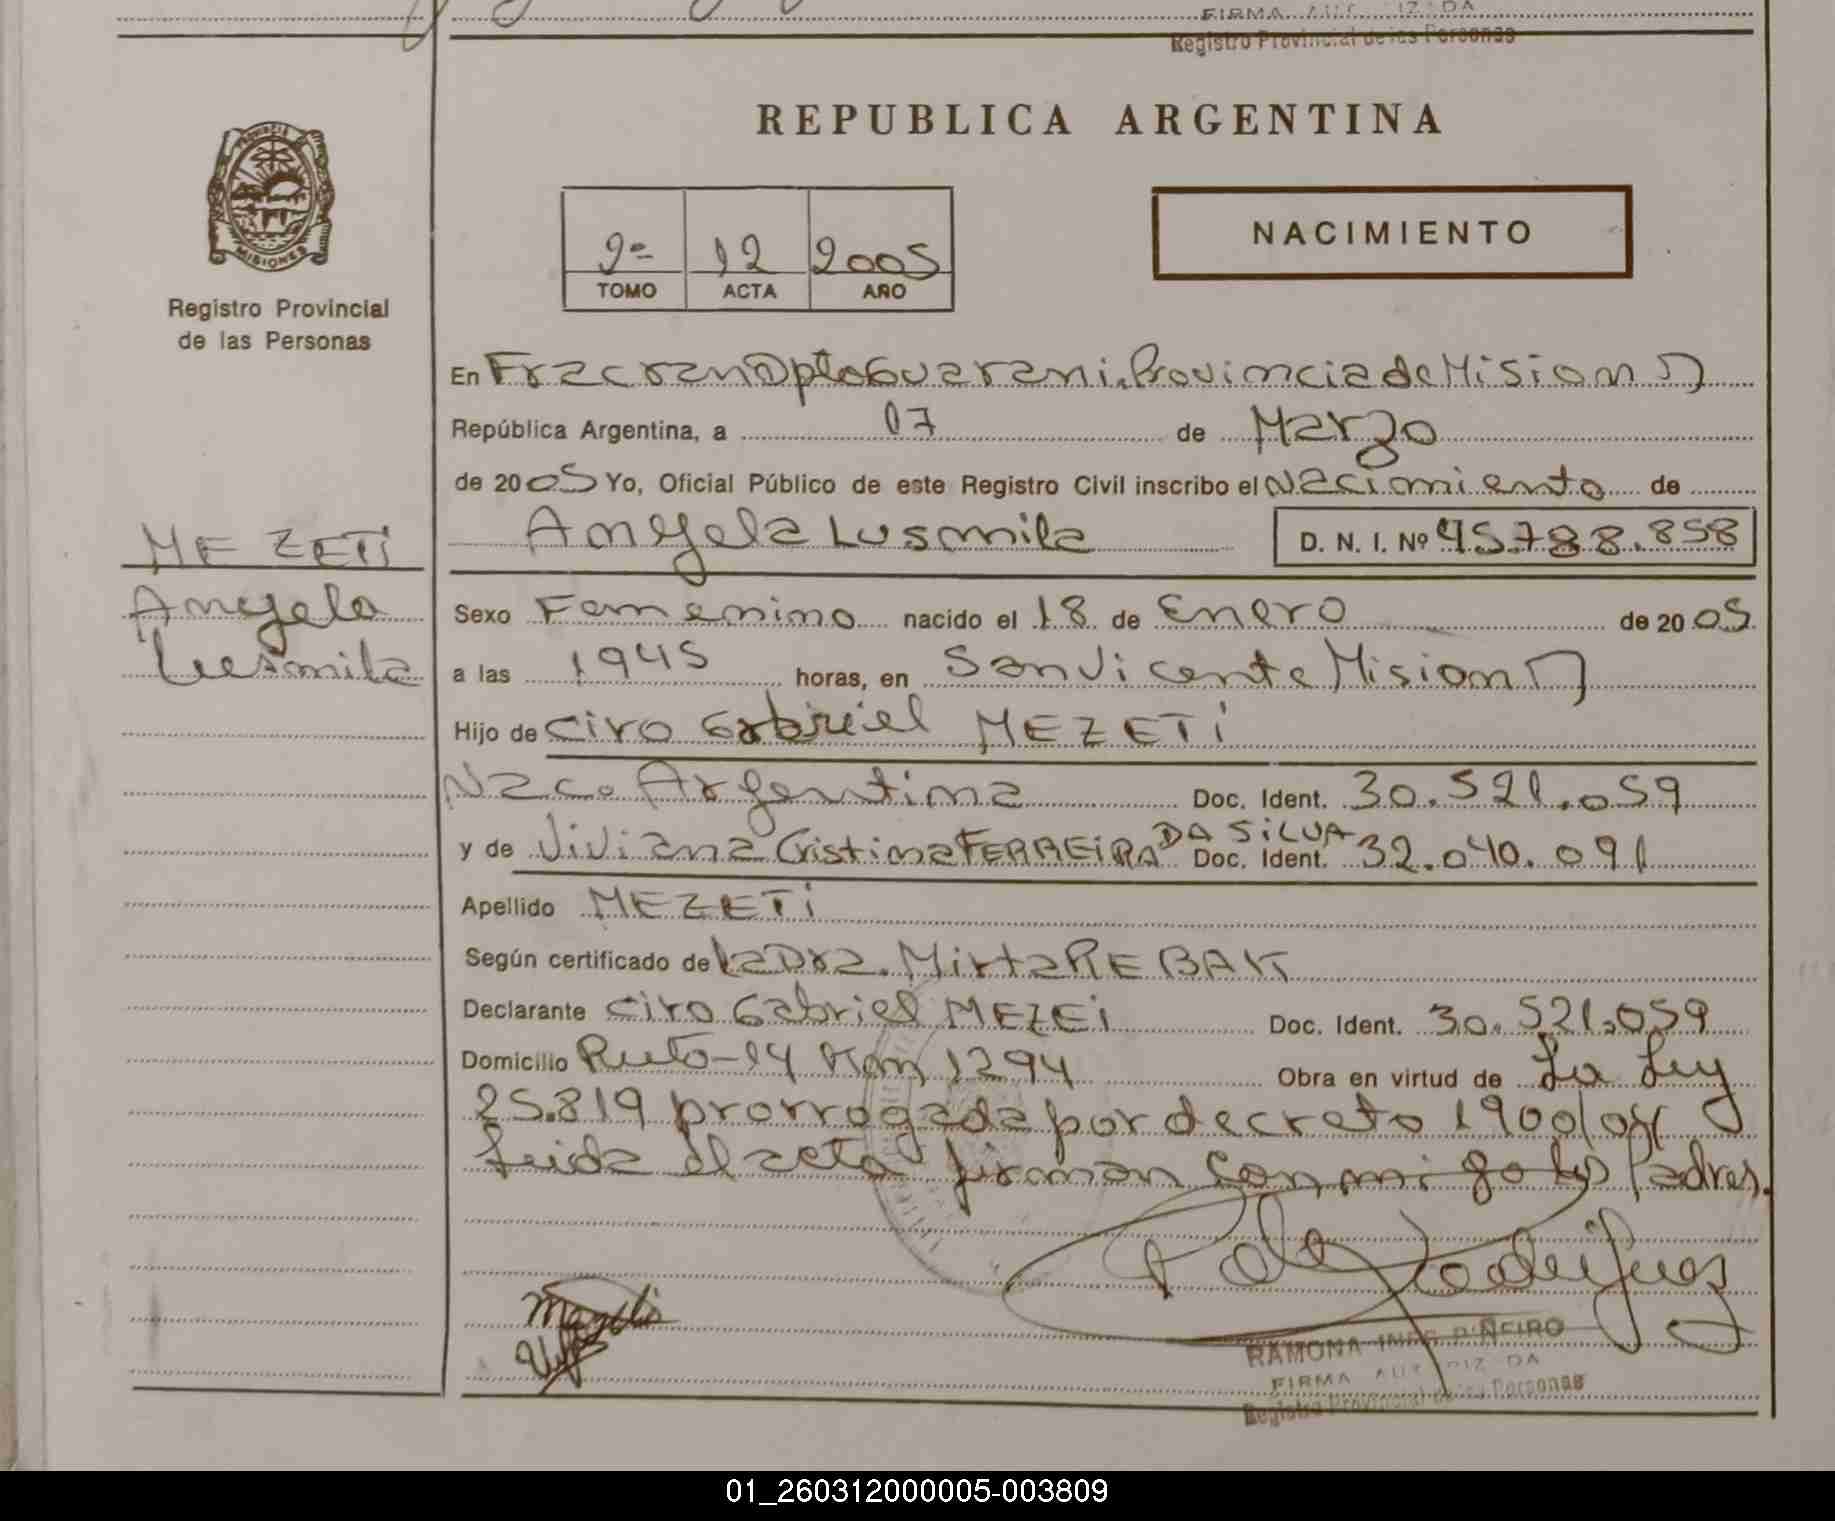 FIRMA AUTORIZADA
Registro Provincial de las Personas
REPUBLICA ARGENTINA
PROVINCIA DE
MISIONES
Registro Provincial
de las Personas
2º 12 2005
TOMO ACTA AÑO
NACIMIENTO
En Fracran Dpto Guarani. Provincia de Misiones
República Argentina, a 07 de Marzo
de 2005 Yo, Oficial Público de este Registro Civil inscribo el Nacimiento de
Angela Lusmila D. N. I. Nº 45.788.858
MEZETi
Angela
Lusmila
Sexo Femenino nacido el 18 de Enero de 2005
a las 1945 horas, en San Vicente Misiones
Hijo de Ciro Gabriel MEZETi
Nac. Argentina Doc. Ident. 30.521.059
y de Viviana Cristina FERREiRA DA SiLVA Doc. Ident. 32.040.091
Apellido MEZETi
Según certificado de la Dra. Mirta REBAK
Declarante Ciro Gabriel MEZEi Doc. Ident. 30.521.059
Domicilio Ruta-14 Km 1294 Obra en virtud de La Ley
25.819 prorrogada por decreto 1900/04
Leida el acta firman conmigo los Padres.
RAMONA INES PIÑEIRO
FIRMA AUTORIZADA
Registro Provincial de las Personas
01_260312000005-003809